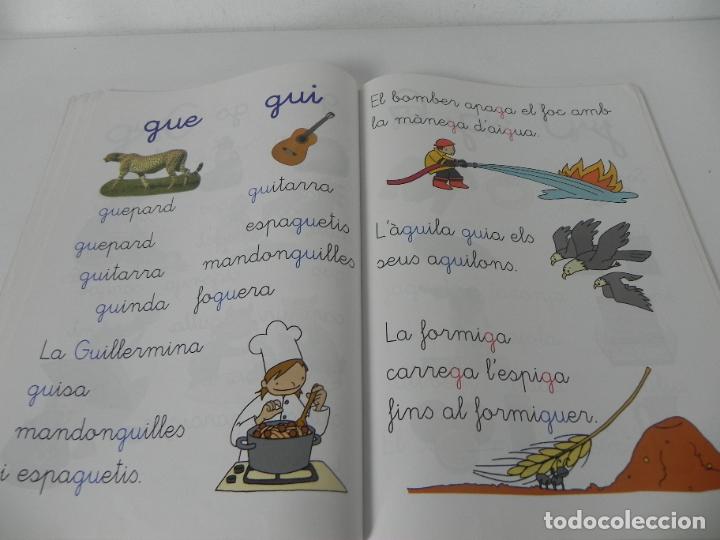 gue gui
guepard
guitarra
guepard espaguetis
guitarra mandonguilles
guinda foguera
La Guillermina
guisa
mandonguilles
i espaguetis.
El bomber apaga el foc amb
la mànega d'aigua.
L'àguila guia els
seus aguilons.
La formiga
carrega l'espiga
fins al formiguer.
todocoleccion.net